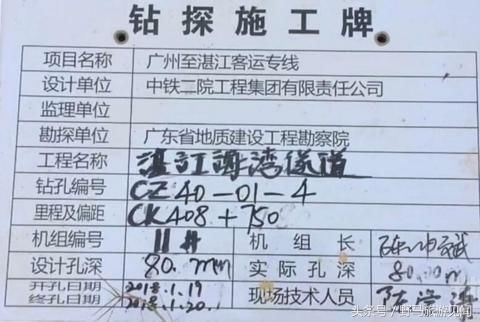 钻探施工牌
项目名称 广州至湛江客运专线
设计单位 中铁二院工程集团有限责任公司
监理单位
勘探单位 广东省地质建设工程勘察院
工程名称 湛江海湾隧道
钻孔编号 CZ40-01-4
里程及偏距 CK408+750
机组编号 11# 机组长
设计孔深 80.mm 实际孔深 80.00m
开孔日期 2018.1.19
终孔日期 2018.1.20. 现场技术人员
头条号/野马旅游见闻